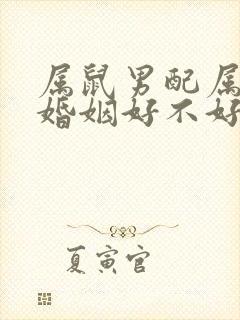 属鼠男配属
婚姻好不好
夏寅官